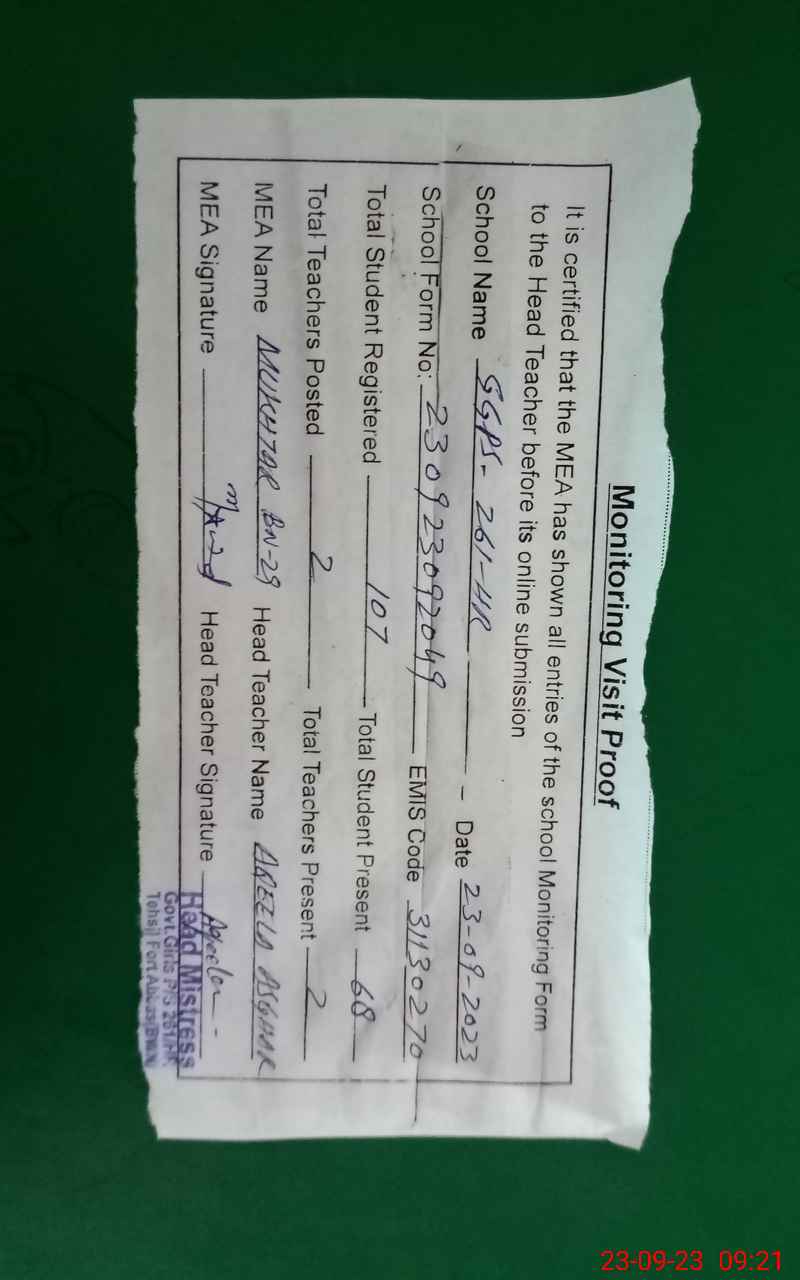 Monitoring Visit Proof
It is certified that the MEA has shown all entries of the school Monitoring Form
to the Head Teacher before its online submission
School Name GGPS- 261-HR - Date 23-09-2023
School Form No: 230923092049 EMIS Code 31130270
Total Student Registered 107 Total Student Present 68
Total Teachers Posted 2 Total Teachers Present 2
MEA Name MUKHTAR BN-29 Head Teacher Name AQEELA ASGHAR
MEA Signature Head Teacher Signature Aqeela
Head Mistress
Govt. Girls P/S 261/HR
Tehsil Fort Abbas BWN
23-09-23 09:21